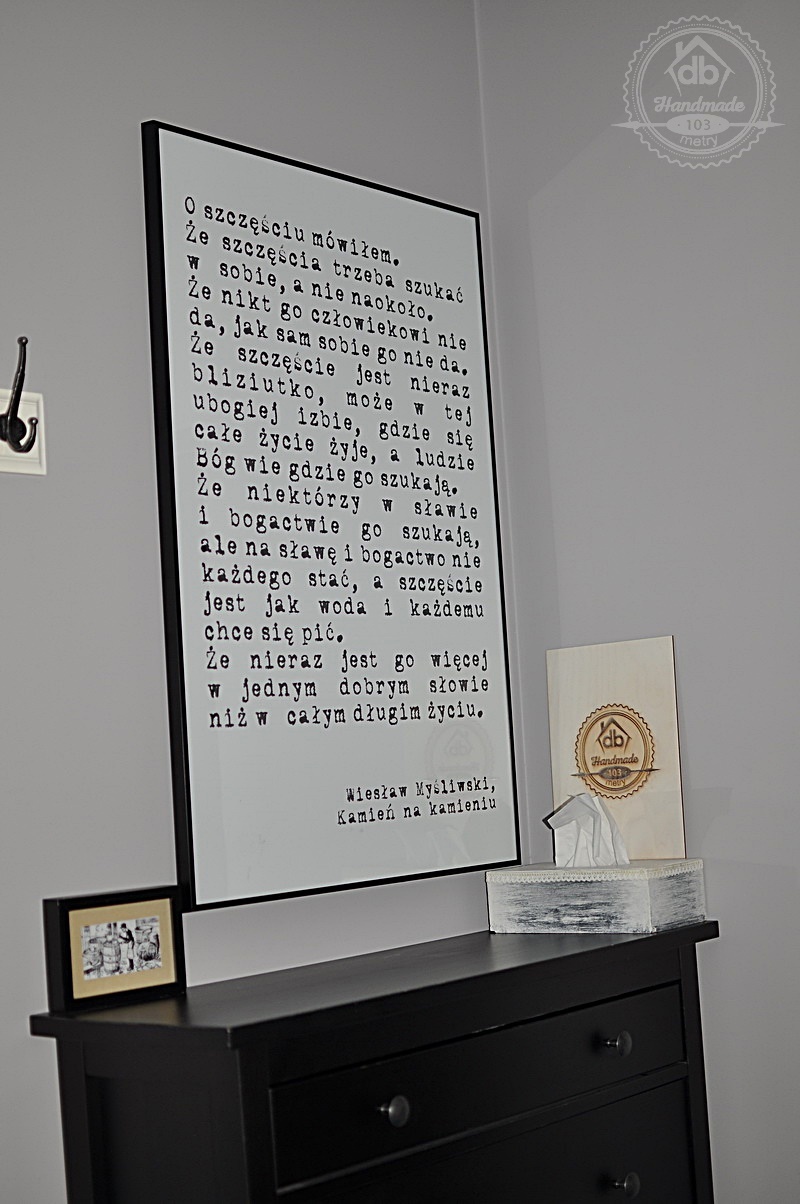 db
Handmade
103
metry
O szczęściu mówiłem.
Że szczęścia trzeba szukać
w sobie, a nie naokoło.
Że nikt go człowiekowi nie
da, jak sam sobie go nie da.
Że szczęście jest nieraz
bliziutko, może w tej
ubogiej izbie, gdzie się
całe życie żyje, a ludzie
Bóg wie gdzie go szukają.
Że niektórzy w sławie
i bogactwie go szukają,
ale na sławę i bogactwo nie
każdego stać, a szczęście
jest jak woda i każdemu
chce się pić.
Że nieraz jest go więcej
w jednym dobrym słowie
niż w całym długim życiu.
Wiesław Myśliwski,
Kamień na kamieniu
db
Handmade
103
metry